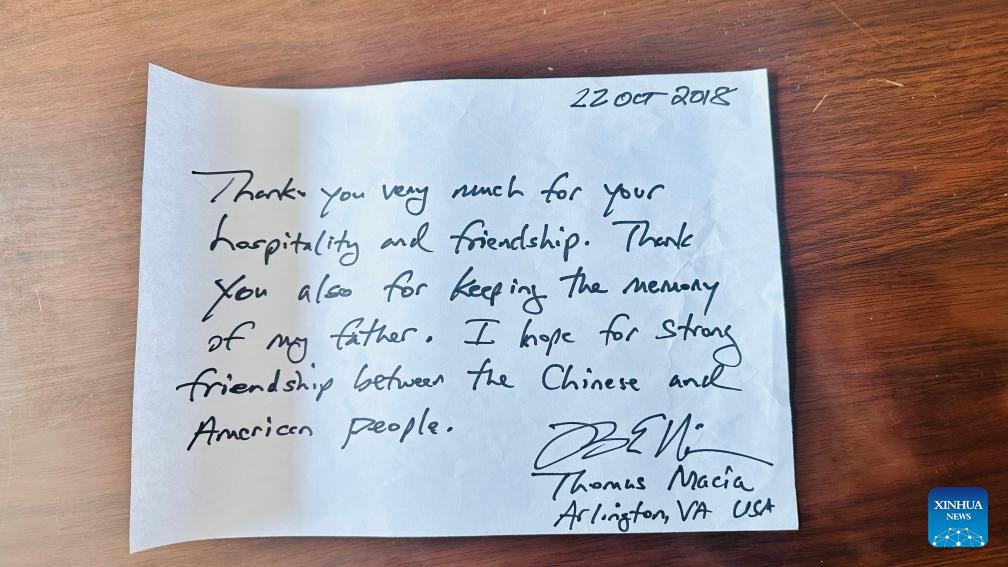 22 OCT 2018
Thank you very much for your
hospitality and friendship. Thank
you also for keeping the memory
of my father. I hope for strong
friendship between the Chinese and
American people.
Thomas Macia
Arlington, VA USA
XINHUA
NEWS